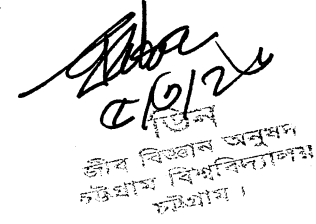 ৫/৩/২৮
ডিন
জীব বিজ্ঞান অনুষদ
চট্টগ্রাম বিশ্ববিদ্যালয়
চট্টগ্রাম।